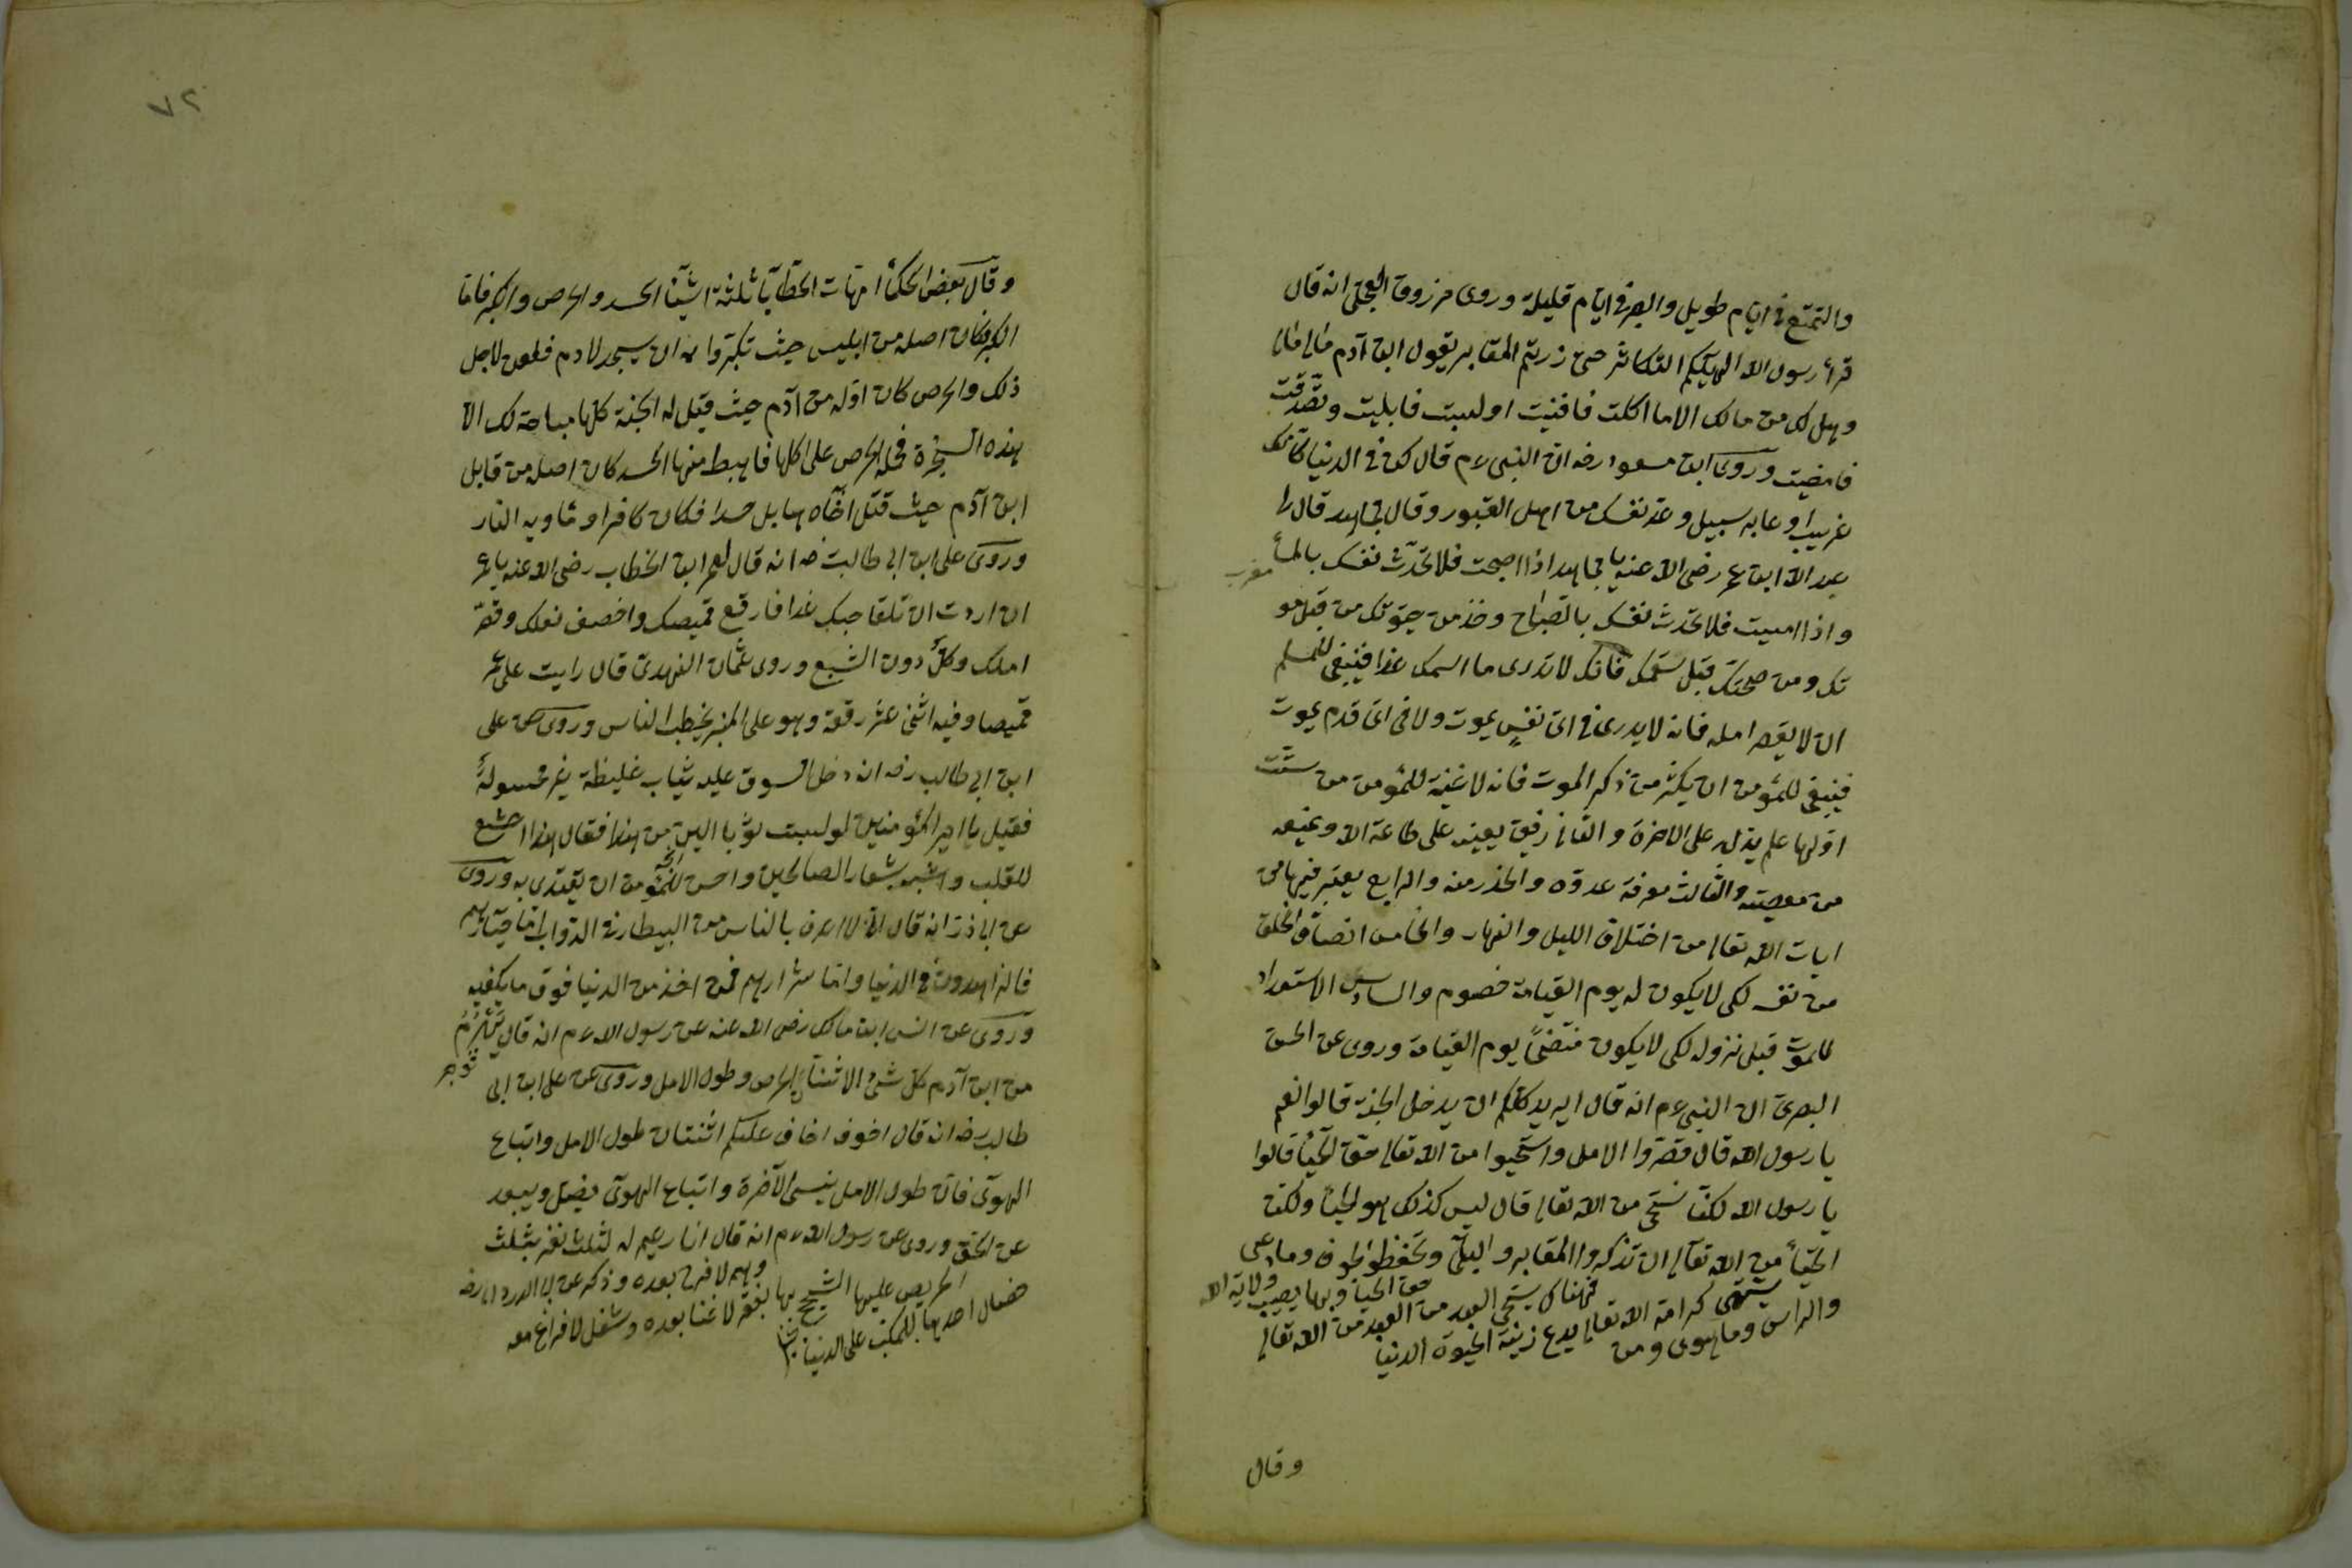 والتمتع في ايام طويل والصبر في ايام قليلة وروى مرزوق العجلي انه قال
قرأ رسول الله الهيكم التكاثر حتى زرتم المقابر يقول ابن آدم مالى مالى
وهل لك من مالك الا ما اكلت فافنيت او لبست فابليت وتصدقت
فامضيت وروى ابن مسعود رضه ان النبي عم قال كن في الدنيا كانك
غريب او عابر سبيل وعد نفسك من اهل القبور وقال مجاهد قال لى
عبد الله ابن عمر رضى الله عنه يا مجاهد اذا اصبحت فلا تحدث نفسك بالمسأ
واذا امسيت فلا تحدث نفسك بالصباح وخذ من حيوتك من قبل مو
تك ومن صحتك قبل سقمك فانك لا تدرى ما اسمك غدا فينبغى للمسلم
ان لا يقصر امله فانه لا يدرى في اى نفس يموت ولا فى اى قدم يموت
فينبغى للمؤمن ان يكثر من ذكر الموت فانه لا غنية للمؤمن من ستت
اولها علم يدله على الاخرة والثانى رفيق يعينه على طاعة الله ويمنعه
من معصيته والثالث معرفة عدوه والحذر منه والرابع يعتبر فيها من
ايات الله تعالى من اختلاف الليل والنهار والخامس انصاف الخلق
من نفسه لكى لا يكون له يوم القيامة خصوم والسادس الاستعداد
للموت قبل نزوله لكى لا يكون مفتضحاً يوم القيامة وروى عن الحسن
البصرى ان النبى عم انه قال ايريد كلكم ان يدخل الجنة قالوا نعم
يا رسول الله قال قصروا الامل واستحيوا من الله تعالى حق الحيأ قالوا
يا رسول الله كلنا نستحى من الله تعالى قال ليس كذلك هو الحيأ ولكن
الحيأ من الله تعالى ان تذكروا المقابر والبلى وتحفظوا الجوف وما وعى
والرأس وما حوى ومن يشتهى كرامة الله تعالى يدع زينة الحيوة الدنيا
فهناك يستحى العبد من الله تعالى حق الحيأ وبها يصيب ولاية الله
وقال
٧٢
وقال بعض الحكمأ امهات الخطايا ثلثة اشيأ الحسد والحرص والكبر فاما
الكبر فكان اصله من ابليس حيث تكبر وابى ان يسجد لادم فلعن لاجل
ذلك والحرص كان اوله من آدم حيث قيل له الجنة كلها مباحة لك الا
هذه الشجرة فحمله الحرص على اكلها فاهبط منها الحسد كان اصله من قابل
ابن آدم حيث قتل اخاه هابل حسدا فكان كافرا وماويه النار
وروى على ابن ابى طالب رضه انه قال لعمر ابن الخطاب رضى الله عنه يا عمر
ان اردت ان تلقا صاحبك غدا فارقع قميصك واخصف نعلك وقصر
املك وكل دون الشبع وروى عثمان النهدى قال رايت على عمر
قميصا وفيه اثنى عشر رقعة وهو على المنبر يخطب الناس وروى عن على
ابن ابى طالب رضه انه دخل السوق عليه ثياب غليظة غير مغسولة
فقيل يا امير المؤمنين لو لبست ثوبا الين من هذا فقال هذا اخشع
للقلب واشبه بشعار الصالحين واحسن للمؤمن ان يقتدى به وروى
عن ابى ذر انه قال انى لا اعرف بالناس من البيطار فى الدواب اما خيارهم
فالزاهدون فى الدنيا واما شرارهم فمن اخذ من الدنيا فوق ما يكفيه
وروى عن انس ابن مالك رضى الله عنه عن رسول الله عم انه قال يهرم
من ابن آدم كل شئ الا اثنتان الحرص وطول الامل وروى عن على ابن ابى
طالب رضه انه قال اخوف اخاف عليكم اثنتان طول الامل واتباع
الهوى فان طول الامل ينسى الآخرة واتباع الهوى يضل ويبعد
عن الحق وروى عن رسول الله عم انه قال انا زعيم له لثلث نفر بثلث
خصال احدها للمكب على الدنيا الحريص عليها الشحيح بها بفقر لا غنا بعده وشغل لا فراغ معه
وهم لا فرح بعده وذكر عن ابى الدردا رضه